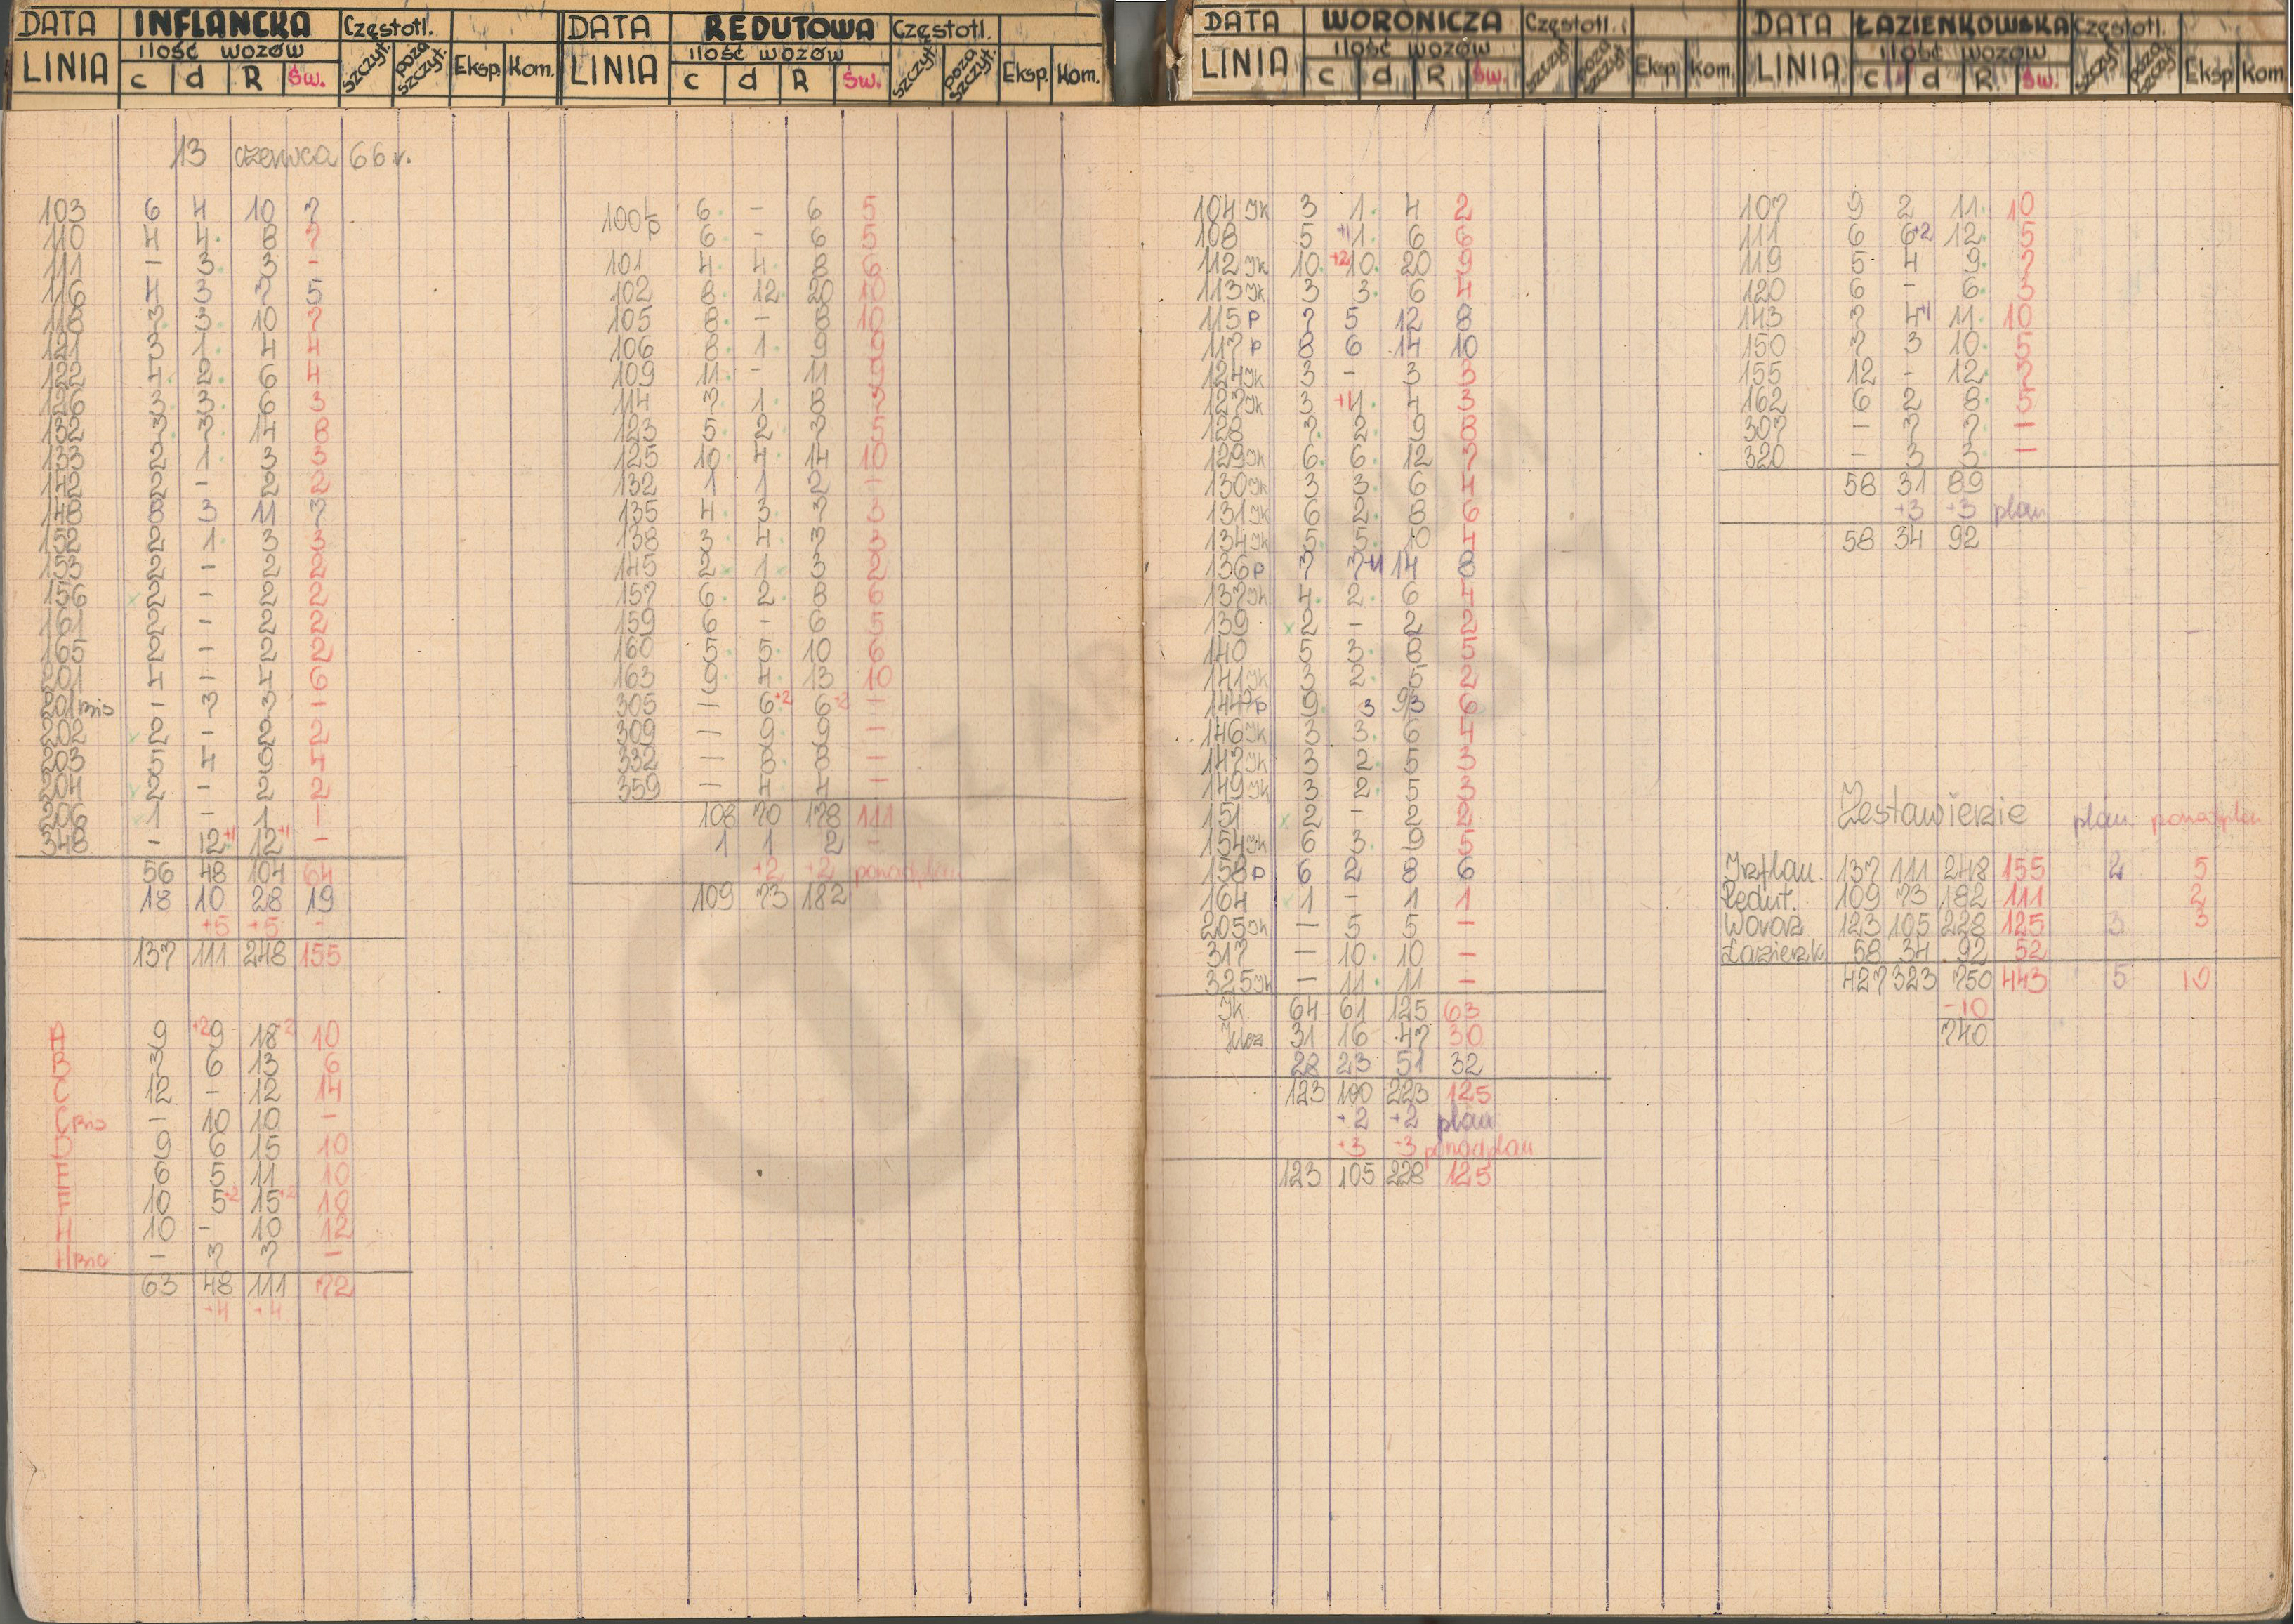 DATA INFLANCKA Częstotl.
LINIA ilość wozów szczyt. poza szczyt. Eksp. Kom.
c d R Św.
13 czerwca 66 r.
103 6 4 10 7
110 4 4 8 7
111 - 3 3 -
116 4 3 7 5
118 7 3 10 7
121 3 1 4 4
122 4 2 6 4
126 3 3 6 3
132 7 7 14 8
133 2 1 3 3
142 2 - 2 2
148 8 3 11 7
152 2 1 3 3
153 2 - 2 2
156 2 - 2 2
161 2 - 2 2
165 2 - 2 2
201 4 - 4 6
201 bis - 3 3 -
202 2 - 2 2
203 5 4 9 4
204 2 - 2 2
206 1 - 1 1
348 - 12+1 12+1 -
56 48 104 64
18 10 28 19
+5 +5 -
137 111 248 155
A 9 +2 9 18+2 10
B 7 6 13 6
C 12 - 12 14
C bis - 10 10 -
D 9 6 15 10
E 6 5 11 10
F 10 5+2 15+2 10
H 10 - 10 12
H bis - 7 7 -
63 48 111 72
+4 +4
DATA REDUTOWA Częstotl.
LINIA ilość wozów szczyt. poza szczyt. Eksp. Kom.
c d R Św.
100 6 - 6 5
6 - 6 5
101 4 4 8 6
102 8 12 20 10
105 8 - 8 10
106 8 1 9 9
109 11 - 11 9
114 7 1 8 7
123 5 2 7 5
125 10 4 14 10
132 1 1 2 -
135 4 3 7 3
138 3 4 7 3
145 2 1 3 2
157 6 2 8 6
159 6 - 6 5
160 5 5 10 6
163 9 4 13 10
305 - 6+2 6+2 -
309 - 9 9 -
332 - 8 8 -
359 - 4 4 -
108 70 178 111
1 1 2 -
+2 +2 ponadplan
109 73 182
DATA WORONICZA Częstotl.
LINIA ilość wozów szczyt. poza szczyt. Eksp. Kom.
c d R Św.
104 Jk 3 1 4 2
108 5 +1 1 6 6
112 Jk 10 +2 10 20 9
113 Jk 3 3 6 4
115 P 7 5 12 8
117 P 8 6 14 10
124 Jk 3 - 3 3
127 Jk 3 +1 1 4 3
128 7 2 9 8
129 Jk 6 6 12 7
130 Jk 3 3 6 4
131 Jk 6 2 8 6
134 Jk 5 5 10 4
136 P 7 7+1 14 8
137 Jk 4 2 6 4
139 2 - 2 2
140 5 3 8 5
141 Jk 3 2 5 2
144 P 9 3 9/3 6
146 Jk 3 3 6 4
147 Jk 3 2 5 3
149 Jk 3 2 5 3
151 2 - 2 2
154 Jk 6 3 9 5
158 P 6 2 8 6
164 1 - 1 1
205 Jk - 5 5 -
317 - 10 10 -
325 Jk - 11 11 -
Jk 64 61 125 63
31 16 47 30
28 23 51 32
123 100 223 125
+2 +2 plan
+3 +3 ponadplan
123 105 228 125
DATA ŁAZIENKOWSKA Częstotl.
LINIA ilość wozów szczyt. poza szczyt. Eksp Kom
c d R Św.
107 9 2 11 10
111 6 6+2 12 5
119 5 4 9 7
120 6 - 6 3
143 7 4+1 11 10
150 7 3 10 5
155 12 - 12 7
162 6 2 8 5
307 - 7 7 -
320 - 3 3 -
58 31 89
+3 +3 plan
58 34 92
Zestawienie plan ponadplan
Inflan. 137 111 248 155 2 5
Redut. 109 73 182 111 2
Woron 123 105 228 125 3 3
Łazienk 58 34 92 52
427 323 750 443 5 10
-10
740